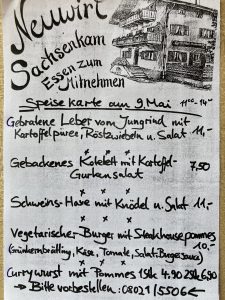 Neuwirt
Sachsenkam
Essen zum
Mitnehmen
Speisekarte am 9. Mai 11⁰⁰-14⁰⁰
Gebratene Leber vom Jungrind mit
Kartoffelpüree, Röstzwiebeln u. Salat 11,-
x x x
Gebackenes Kotelett mit Kartoffel-
Gurkensalat 7,50
x x x
Schweins-Haxe mit Knödel u. Salat 11,-
x x x
Vegetarischer-Burger mit Steakhousepommes
(Grünkernbratling, Käse, Tomate, Salat, Burgersauce) 10,-
x x x
Currywurst mit Pommes 1Stk. 4.90 2Stk 6.90
→ Bitte vorbestellen: 08021/5506 ←